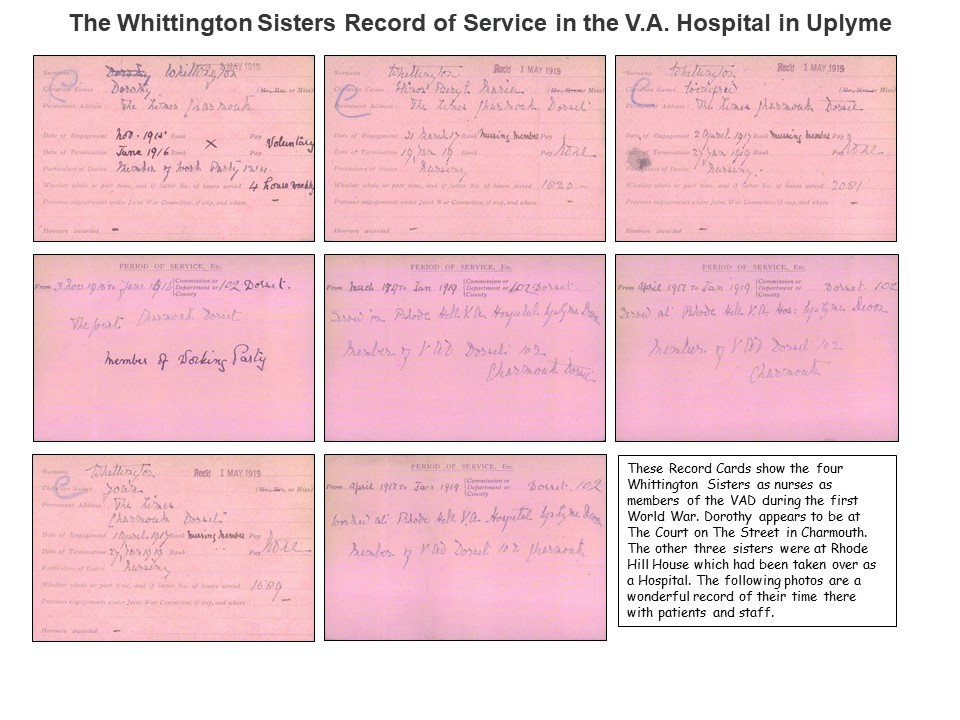 The Whittington Sisters Record of Service in the V.A. Hospital in Uplyme
Surname Whittington MAY 1919
Christian Names Dorothy (Mr., Mrs. or Miss)
Permanent Address: The Limes Charmouth
Date of Engagement Nov. 1915 Rank Pay Voluntary
Date of Termination June 1916 Rank × Pay
Particulars of Duties Member of Work Party
Whether whole or part time, and if latter No. of hours served 4 hours weekly
Previous engagements under Joint War Committee, if any, and where –
Honours awarded –
Surname Whittington Recd 1 MAY 1919
Christian Names Beryl (Mr., Mrs. or Miss)
Permanent Address: The Limes Charmouth Dorset
Date of Engagement 21 March 17 Rank Nursing Member Pay
Date of Termination 19 Jan 19 Rank Pay None
Particulars of Duties Nursing
Whether whole or part time, and if latter No. of hours served 1820 –
Previous engagements under Joint War Committee, if any, and where –
Honours awarded –
Surname Whittington Recd 1 MAY 1919
Christian Names Winifred (Mr., Mrs. or Miss)
Permanent Address: The Limes Charmouth Dorset
Date of Engagement 2 April 1917 Rank Nursing Member Pay
Date of Termination Jan 1919 Rank Pay None
Particulars of Duties Nursing.
Whether whole or part time, and if latter No. of hours served 2081
Previous engagements under Joint War Committee, if any, and where –
Honours awarded –
PERIOD OF SERVICE, Etc.
From 3 Nov 1915 to June 1916 Commission or Department or County 102 Dorset.
The Court. Charmouth Dorset
Member of Working Party
PERIOD OF SERVICE, Etc.
From March 1917 to Jan. 1919 Commission or Department or County 102 Dorset
Served in Rhode Hill V.A. Hospital Uplyme Devon
Member of VAD Dorset 102
Charmouth Dorset
PERIOD OF SERVICE, Etc.
From April 1917 to Jan 1919 Commission or Department or County Dorset 102
Served at Rhode Hill V.A. Hos: Uplyme Devon
Member of VAD Dorset 102
Charmouth
Surname Whittington Recd 1 MAY 1919
Christian Names Joan (Mr., Mrs. or Miss)
Permanent Address The Limes
Charmouth Dorset
Date of Engagement 1 April 1917 Rank Nursing Member Pay
Date of Termination 27 Jan 1919 Rank Pay None
Particulars of Duties Nursing
Whether whole or part time, and if latter No. of hours served 1689
Previous engagements under Joint War Committee, if any, and where –
Honours awarded –
PERIOD OF SERVICE, Etc.
From April 1917 to Jan 1919 Commission or Department or County Dorset. 102
Worked at Rhode Hill V.A. Hospital Uplyme Devon
Member of VAD Dorset 102 Charmouth
These Record Cards show the four
Whittington Sisters as nurses as
members of the VAD during the first
World War. Dorothy appears to be at
The Court on The Street in Charmouth.
The other three sisters were at Rhode
Hill House which had been taken over as
a Hospital. The following photos are a
wonderful record of their time there
with patients and staff.